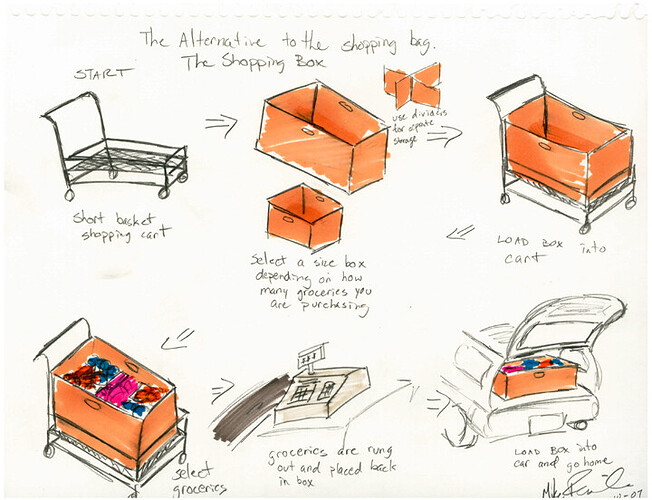 The Alternative to the shopping bag.
The Shopping Box
START
use dividers
for
storage
Short basket
shopping cart
Select a size box
depending on how
many groceries you
are purchasing
LOAD BOX into
cart
Select
groceries
groceries are rung
out and placed back
in box
LOAD BOX into
car and go home
Mike